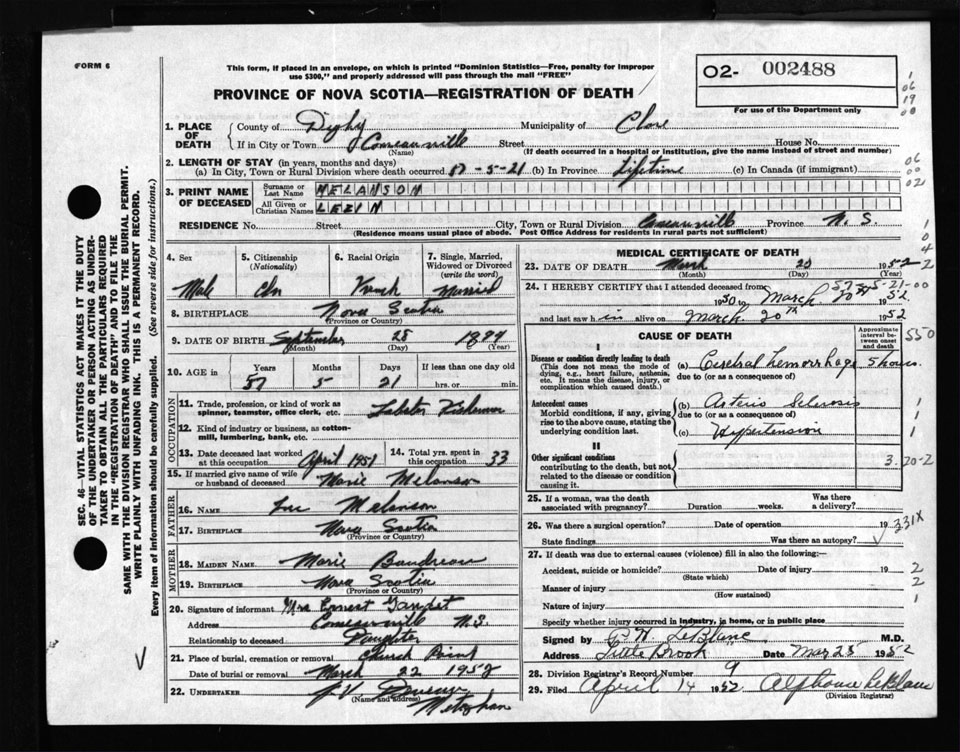 FORM 6
This form, if placed in an envelope, on which is printed "Dominion Statistics—Free, penalty for improper
use $300," and properly addressed will pass through the mail "FREE"
PROVINCE OF NOVA SCOTIA—REGISTRATION OF DEATH
O2- 002488
For use of the Department only
1. PLACE OF DEATH
County of Digby Municipality of Clare
If in City or Town Comeauville Street House No.
(Name) (If death occurred in a hospital or institution, give the name instead of street and number)
2. LENGTH OF STAY (in years, months and days)
(a) In City, Town or Rural Division where death occurred 57-5-21 (b) In Province Lifetime (c) In Canada (if immigrant)
3. PRINT NAME OF DECEASED
Surname or Last Name MELANSON
All Given or Christian Names LEZIN
RESIDENCE No. Street City, Town or Rural Division Comeauville Province N. S.
(Residence means usual place of abode. Post Office Address for residents in rural parts not sufficient)
4. Sex Male
5. Citizenship (Nationality) Cdn
6. Racial Origin French
7. Single, Married, Widowed or Divorced (write the word) Married
8. BIRTHPLACE Nova Scotia
(Province or Country)
9. DATE OF BIRTH September 28 1894
(Month) (Day) (Year)
10. AGE in Years Months Days If less than one day old
57 5 21 hrs. or min.
OCCUPATION
11. Trade, profession, or kind of work as spinner, teamster, office clerk, etc. Lobster Fisherman
12. Kind of industry or business, as cotton-mill, lumbering, bank, etc.
13. Date deceased last worked at this occupation April 1951
14. Total yrs. spent in this occupation 33
15. If married give name of wife or husband of deceased Marie Melanson
FATHER
16. Name Melanson
17. Birthplace Nova Scotia
(Province or Country)
MOTHER
18. Maiden Name Marie Boudreau
19. Birthplace Nova Scotia
(Province or Country)
20. Signature of informant Mrs Ernest Gaudet
Address Comeauville N.S.
Relationship to deceased Daughter
21. Place of burial, cremation or removal Church Point
Date of burial or removal March 22 1952
22. UNDERTAKER
(Name and address)
Meteghan
MEDICAL CERTIFICATE OF DEATH
23. DATE OF DEATH March 20 1952
(Month) (Day) (Year)
24. I HEREBY CERTIFY that I attended deceased from
1950 to March 20th 1952
and last saw him alive March 20th 1952
CAUSE OF DEATH
Approximate interval between onset and death
I
Disease or condition directly leading to death
(This does not mean the mode of dying, e.g., heart failure, asthenia, etc. It means the disease, injury, or complication which caused death.)
(a) Cerebral hemorrhage 5 hours
due to (or as a consequence of)
Antecedent causes
Morbid conditions, if any, giving rise to the above cause, stating the underlying condition last.
(b) Arterio Sclerosis
due to (or as a consequence of)
(c) Hypertension
II
Other significant conditions
contributing to the death, but not related to the disease or condition causing it.
25. If a woman, was the death associated with pregnancy? Duration weeks. Was there a delivery?
26. Was there a surgical operation? Date of operation 19
State findings Was there an autopsy?
331X
27. If death was due to external causes (violence) fill in also the following:—
Accident, suicide or homicide? Date of injury 19
(State which)
Manner of injury
(How sustained)
Nature of injury
Specify whether injury occurred in industry, in home, or in public place
Signed by P.H. LeBlanc M.D.
Address Little Brook Date Mar 25 1952
28. Division Registrar's Record Number 9
29. Filed April 14 1952 Alphonse LeBlanc
(Division Registrar)
SEC. 46—VITAL STATISTICS ACT MAKES IT THE DUTY
OF THE UNDERTAKER OR PERSON ACTING AS UNDER-
TAKER TO OBTAIN ALL THE PARTICULARS REQUIRED
IN THE "REGISTRATION OF DEATH" AND TO FILE THE
SAME WITH THE DIVISION REGISTRAR WHO SHALL ISSUE THE BURIAL PERMIT.
WRITE PLAINLY WITH UNFADING INK. THIS IS A PERMANENT RECORD.
Every item of information should be carefully supplied. (See reverse side for instructions.)